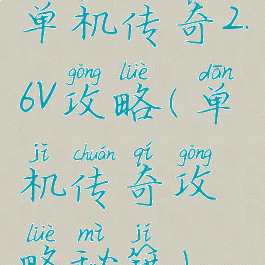 单机传奇2.
gōng lüè dān
6V攻略(单
jī chuán qí gōng
机传奇攻
lüè mì jí
略秘籍)